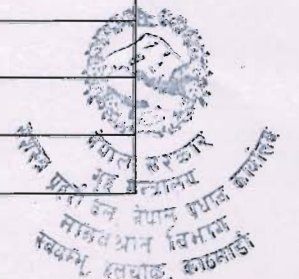 नेपाल सरकार
गृह मन्त्रालय
सशस्त्र प्रहरी बल, नेपाल प्रधान कार्यालय
विभाग
स्वयम्भू हलचोक काठमाडौं